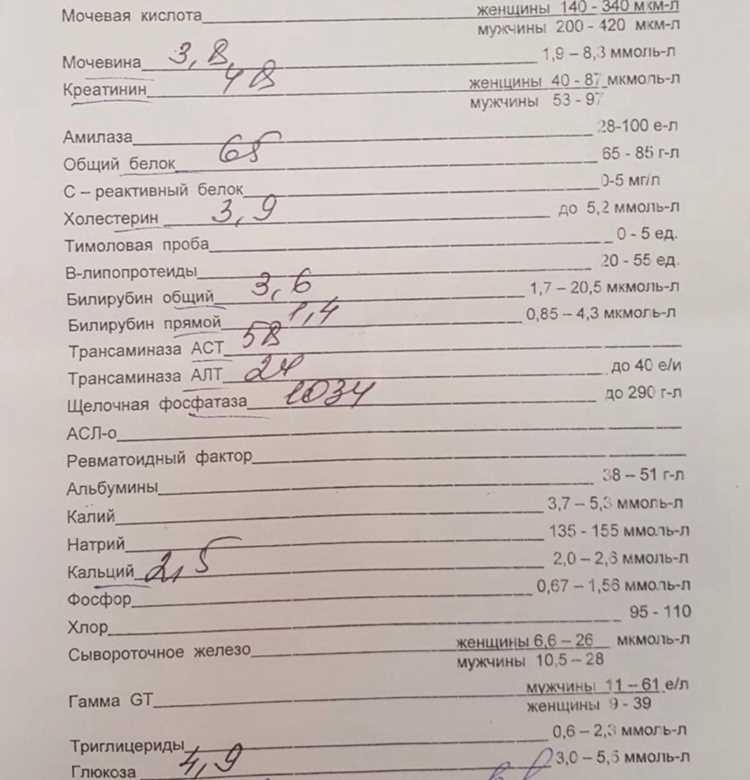 Мочевая кислота женщины 140 - 340 мкм-л
мужчины 200 - 420 мкм-л
Мочевина 3,8 1,9 – 8,3 ммоль-л
Креатинин 48 женщины 40 - 87 мкмоль-л
мужчины 53 - 97
Амилаза 28-100 е-л
Общий белок 65 65 - 85 г-л
С – реактивный белок 0-5 мг/л
Холестерин 3,9 до 5,2 ммоль-л
Тимоловая проба 0 - 5 ед.
В-липопротеиды 20 - 55 ед.
Билирубин общий 3,6 1,7 – 20,5 мкмоль-л
Билирубин прямой 1,4 0,85 – 4,3 мкмоль-л
Трансаминаза АСТ 58
Трансаминаза АЛТ 24 до 40 е/и
Щелочная фосфатаза 1034 до 290 г-л
АСЛ-о
Ревматоидный фактор
Альбумины 38 – 51 г-л
Калий 3,7 – 5,3 ммоль-л
Натрий 135 - 155 ммоль-л
Кальций 2,5 2,0 – 2,6 ммоль-л
Фосфор 0,67 – 1,56 ммоль-л
Хлор 95 - 110
Сывороточное железо женщины 6,6 – 26 мкмоль-л
мужчины 10,5 – 28
Гамма GT мужчины 11 – 61 е/л
женщины 9 - 39
Триглицериды 0,6 – 2,3 ммоль-л
Глюкоза 4,9 3,0 – 5,6 ммоль-л